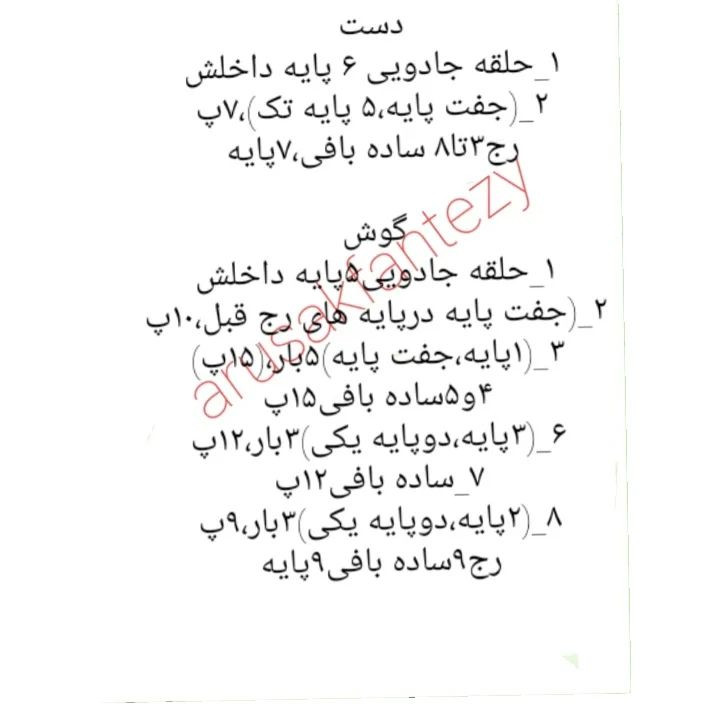 دست
۱_حلقه جادویی ۶ پایه داخلش
۲_(جفت پایه،۵ پایه تک)،۷پ
رج۳تا۸ ساده بافی،۷پایه
گوش
۱_حلقه جادویی۵پایه داخلش
۲_(جفت پایه درپایه های رج قبل،۱۰پ
۳_(۱پایه،جفت پایه)۵بار،(۱۵پ)
۴و۵ساده بافی۱۵پ
۶_(۳پایه،دوپایه یکی)۳بار،۱۲پ
۷_ساده بافی۱۲پ
۸_(۲پایه،دوپایه یکی)۳بار،۹پ
رج۹ساده بافی۹پایه
arusakfantezy